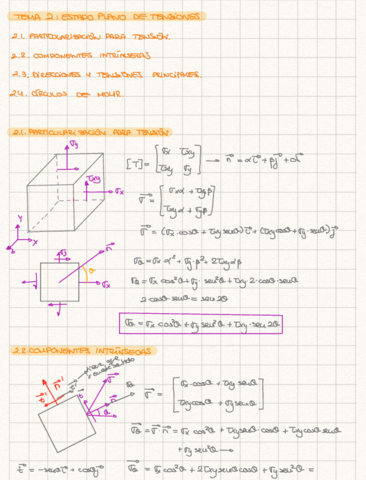 TEMA 2: ESTADO PLANO DE TENSIONES
2.1. PARTICULARIZACIÓN PARA TENSIÓN
2.2. COMPONENTES INTRÍNSECAS
2.3. DIRECCIONES Y TENSIONES PRINCIPALES.
2.4. CÍRCULOS DE MOHR
2.1. PARTICULARIZACIÓN PARA TENSIÓN
σy
[T] = [σx τxy
τxy σy] → n⃗ = αi⃗ + βj⃗ +
τxy
σx
σ⃗ = [σxα + τxyβ
τxyα + σyβ]
σ⃗ = (σx·cosθ + τxy senθ)i⃗ + (τxy cosθ + σy·senθ)j⃗
y
x
σy
n⃗
θ
σx
σθ = σx α² + σy·β² + 2τxyαβ
σθ = σx cos²θ + σy·sen²θ + τxy·2·cosθ·senθ
2cosθ·senθ = sen2θ
σθ = σx cos²θ + σy sen²θ + τxy·sen2θ
2.2. COMPONENTES INTRÍNSECAS
n⃗'
t⃗'
σ⃗
σθ
n⃗
θ
σ⃗ = [σx·cosθ + τxy senθ
τxy cosθ + σy senθ]
σθ = σ⃗·n⃗ = σx cos²θ + τxy senθ·cosθ + τxy cosθ senθ
+ σy sen²θ →
t⃗ = -senθi⃗ + cosθj⃗
σθ = σx cos²θ + 2τxy senθ cosθ + σy sen²θ =